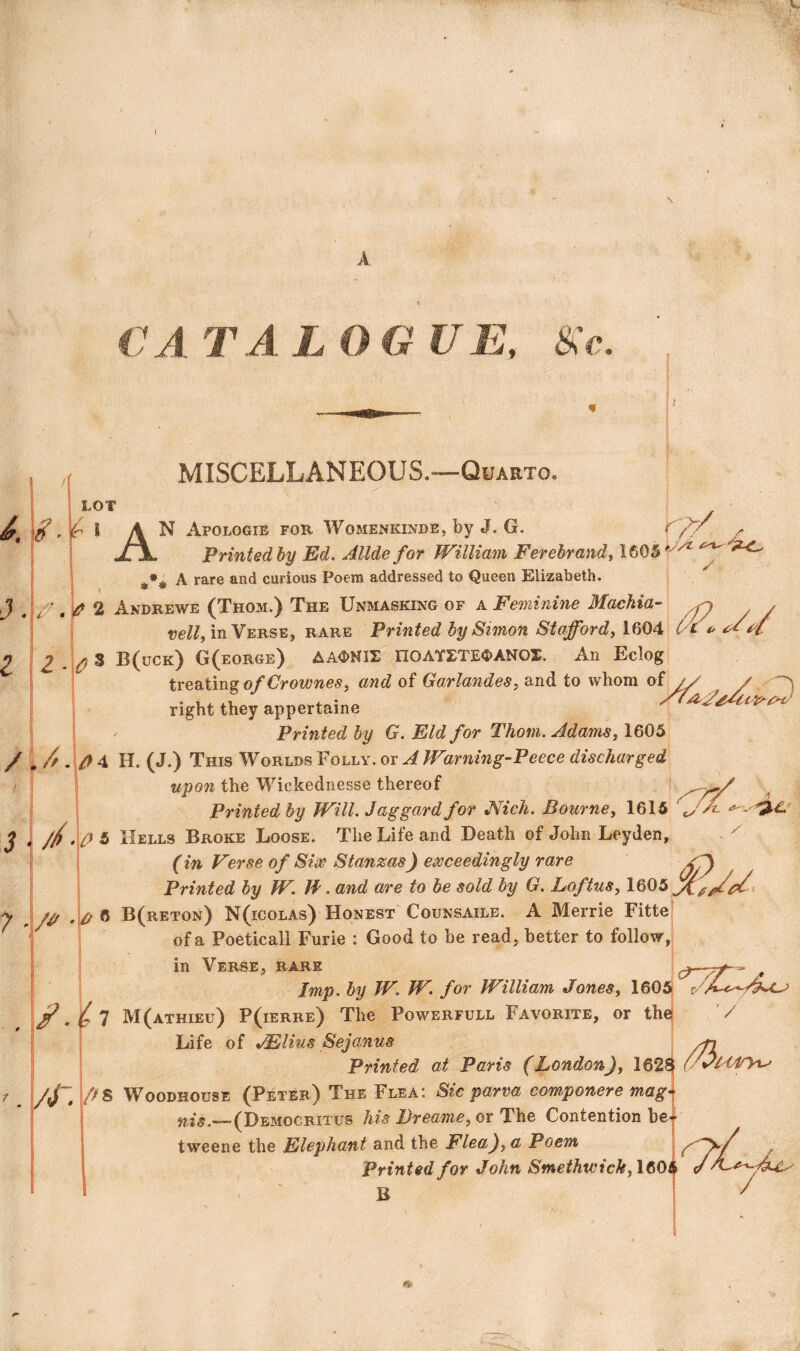 A
CATALOGUE, &c.
MISCELLANEOUS.—QUARTO.
LOT
4. 8. 6 1 AN APOLOGIE FOR WOMENKINDE, by J. G.
Printed by Ed. Allde for William Ferebrand, 1605
*** A rare and curious Poem addressed to Queen Elizabeth.
2 ANDREWE (THOM.) THE UNMASKING OF A Feminine Machia-
vell, in VERSE, RARE Printed by Simon Stafford, 1604
2 2. 0 3 B(UCK) G(EORGE) ΔΑΦΝΙΣ ΠΟΛΥΣΤΕΦΑΝΟΣ. An Eclog
treating of Crownes, and of Garlandes, and to whom of
right they appertaine
Printed by G. Eld for Thom. Adams, 1605
4 H. (J.) THIS WORLDS FOLLY. or A Warning-Peece discharged
upon the Wickednesse thereof
Printed by Will. Jaggard for Nich. Bourne, 1615
5 HELLS BROKE LOOSE. The Life and Death of John Leyden,
(in Verse of Six Stanzas) exceedingly rare
Printed by W. W. and are to be sold by G. Loftus, 1605
6 B(RETON) N(ICOLAS) HONEST COUNSAILE. A Merrie Fitte
of a Poeticall Furie : Good to be read, better to follow,
in VERSE, RARE
Imp. by W. W. for William Jones, 1605
7 M(ATHIEU) P(IERRE) The POWERFULL FAVORITE, or the
Life of Ælius Sejanus
Printed at Paris (London), 1628
8 WOODHOUSE (PETER) THE FLEA: Sic parva componere mag-
nis.—(DEMOCRITUS his Dreame, or The Contention be-
tweene the Elephant and the Flea), a Poem
Printed for John Smethwick, 1604
B